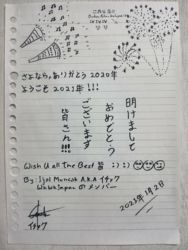 さよなら、ありがとう 2020年
ようこそ 2021年!!!
明けまして
おめでとう
ございます
皆さん!!!
Wish U all The Best 皆 :) :)
By: Ijol Muncak A.K.A イチョワ
WakuJapan のメンバー
イチョワ
2021年1月2日